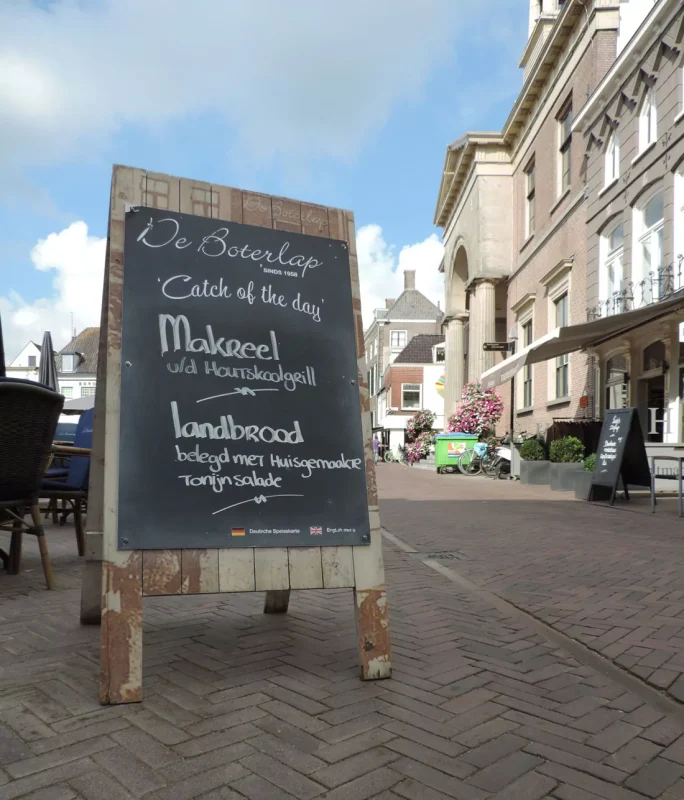 De Boterlap
De Boterlap
SINDS 1958
'Catch of the day'
Makreel
v/d Houtskoolgrill
landbrood
belegd met Huisgemaakte
Tonijn salade
Deutsche Speisekarte
English menu